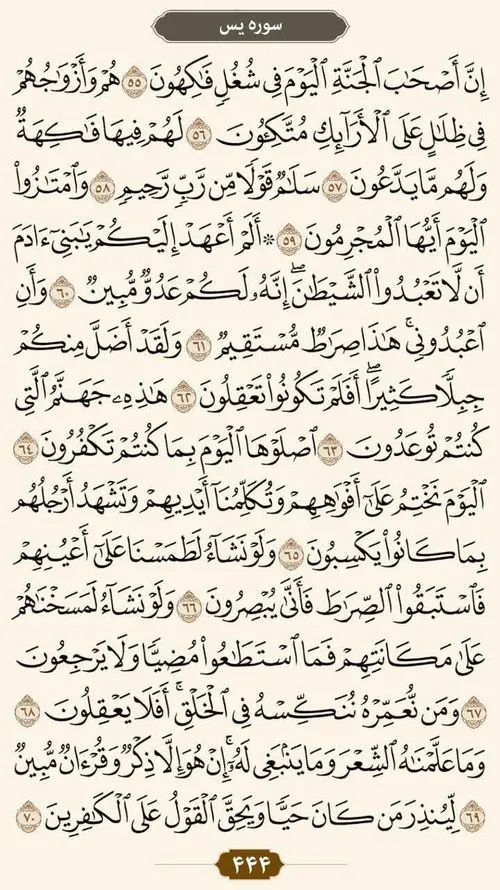 سوره یس
إِنَّ أَصْحَٰبَ ٱلْجَنَّةِ ٱلْيَوْمَ فِى شُغُلٍ فَٰكِهُونَ ۝٥٥ هُمْ وَأَزْوَٰجُهُمْ
فِى ظِلَٰلٍ عَلَى ٱلْأَرَآئِكِ مُتَّكِـُٔونَ ۝٥٦ لَهُمْ فِيهَا فَٰكِهَةٌ
وَلَهُم مَّا يَدَّعُونَ ۝٥٧ سَلَٰمٌ قَوْلًا مِّن رَّبٍّ رَّحِيمٍ ۝٥٨ وَٱمْتَٰزُوا۟
ٱلْيَوْمَ أَيُّهَا ٱلْمُجْرِمُونَ ۝٥٩ ۞ أَلَمْ أَعْهَدْ إِلَيْكُمْ يَٰبَنِىٓ ءَادَمَ
أَن لَّا تَعْبُدُوا۟ ٱلشَّيْطَٰنَ ۖ إِنَّهُۥ لَكُمْ عَدُوٌّ مُّبِينٌ ۝٦٠ وَأَنِ
ٱعْبُدُونِى ۚ هَٰذَا صِرَٰطٌ مُّسْتَقِيمٌ ۝٦١ وَلَقَدْ أَضَلَّ مِنكُمْ
جِبِلًّا كَثِيرًا ۖ أَفَلَمْ تَكُونُوا۟ تَعْقِلُونَ ۝٦٢ هَٰذِهِۦ جَهَنَّمُ ٱلَّتِى
كُنتُمْ تُوعَدُونَ ۝٦٣ ٱصْلَوْهَا ٱلْيَوْمَ بِمَا كُنتُمْ تَكْفُرُونَ ۝٦٤
ٱلْيَوْمَ نَخْتِمُ عَلَىٰٓ أَفْوَٰهِهِمْ وَتُكَلِّمُنَآ أَيْدِيهِمْ وَتَشْهَدُ أَرْجُلُهُم
بِمَا كَانُوا۟ يَكْسِبُونَ ۝٦٥ وَلَوْ نَشَآءُ لَطَمَسْنَا عَلَىٰٓ أَعْيُنِهِمْ
فَٱسْتَبَقُوا۟ ٱلصِّرَٰطَ فَأَنَّىٰ يُبْصِرُونَ ۝٦٦ وَلَوْ نَشَآءُ لَمَسَخْنَٰهُمْ
عَلَىٰ مَكَانَتِهِمْ فَمَا ٱسْتَطَٰعُوا۟ مُضِيًّا وَلَا يَرْجِعُونَ
۝٦٧ وَمَن نُّعَمِّرْهُ نُنَكِّسْهُ فِى ٱلْخَلْقِ ۖ أَفَلَا يَعْقِلُونَ ۝٦٨
وَمَا عَلَّمْنَٰهُ ٱلشِّعْرَ وَمَا يَنۢبَغِى لَهُۥٓ ۚ إِنْ هُوَ إِلَّا ذِكْرٌ وَقُرْءَانٌ مُّبِينٌ
۝٦٩ لِّيُنذِرَ مَن كَانَ حَيًّا وَيَحِقَّ ٱلْقَوْلُ عَلَى ٱلْكَٰفِرِينَ ۝٧٠
۴۴۴